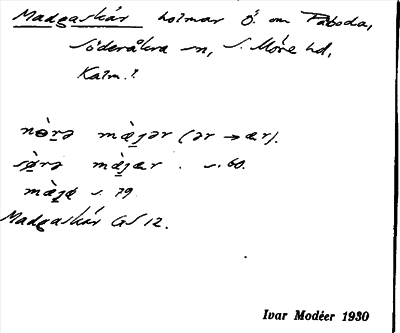 Madgaskär holmar Ö. om Påboda,
Söderåkra sn, S. Möre hd,
Kalm. l.
nø̀rə mæ̀jər (ər → ær).
sø̀rə mæ̀jær . s. 60.
mæ̀jə s. 79
Madgaskär GS 12.
Ivar Modéer 1930